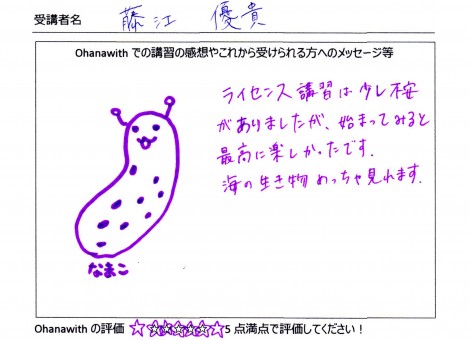 受講者名 藤江 優貴
Ohanawith での講習の感想やこれから受けられる方へのメッセージ等
ライセンス講習は少し不安
がありましたが、始まってみると
最高に楽しかったです.
海の生き物めっちゃ見れます.
なまこ
Ohanawith の評価 ☆☆☆☆☆☆☆5 点満点で評価してください！